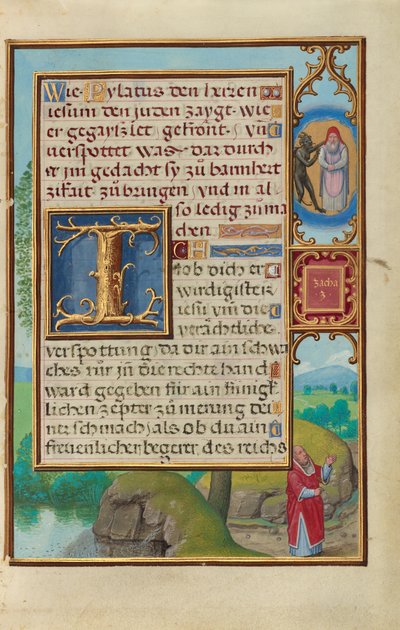 Wie Pylatus den herren
iesum den juden zaygt. wie
er gegayszlet gekront. Und
verspottet was dar durch
er im gedacht sy zů barmhert
zikait zů bringen und in al
so ledig zů ma
chen
Ich
lob dich er
wirdigister
iesu um die
verachtliche
verspottung da dir ain schwa
ches růr in die rechte hand
ward gegeben für ain künigk
lichen zepter zů merung dei
ner schmach als ob du ain
frevenlicher begerer des reichs
zacha
3